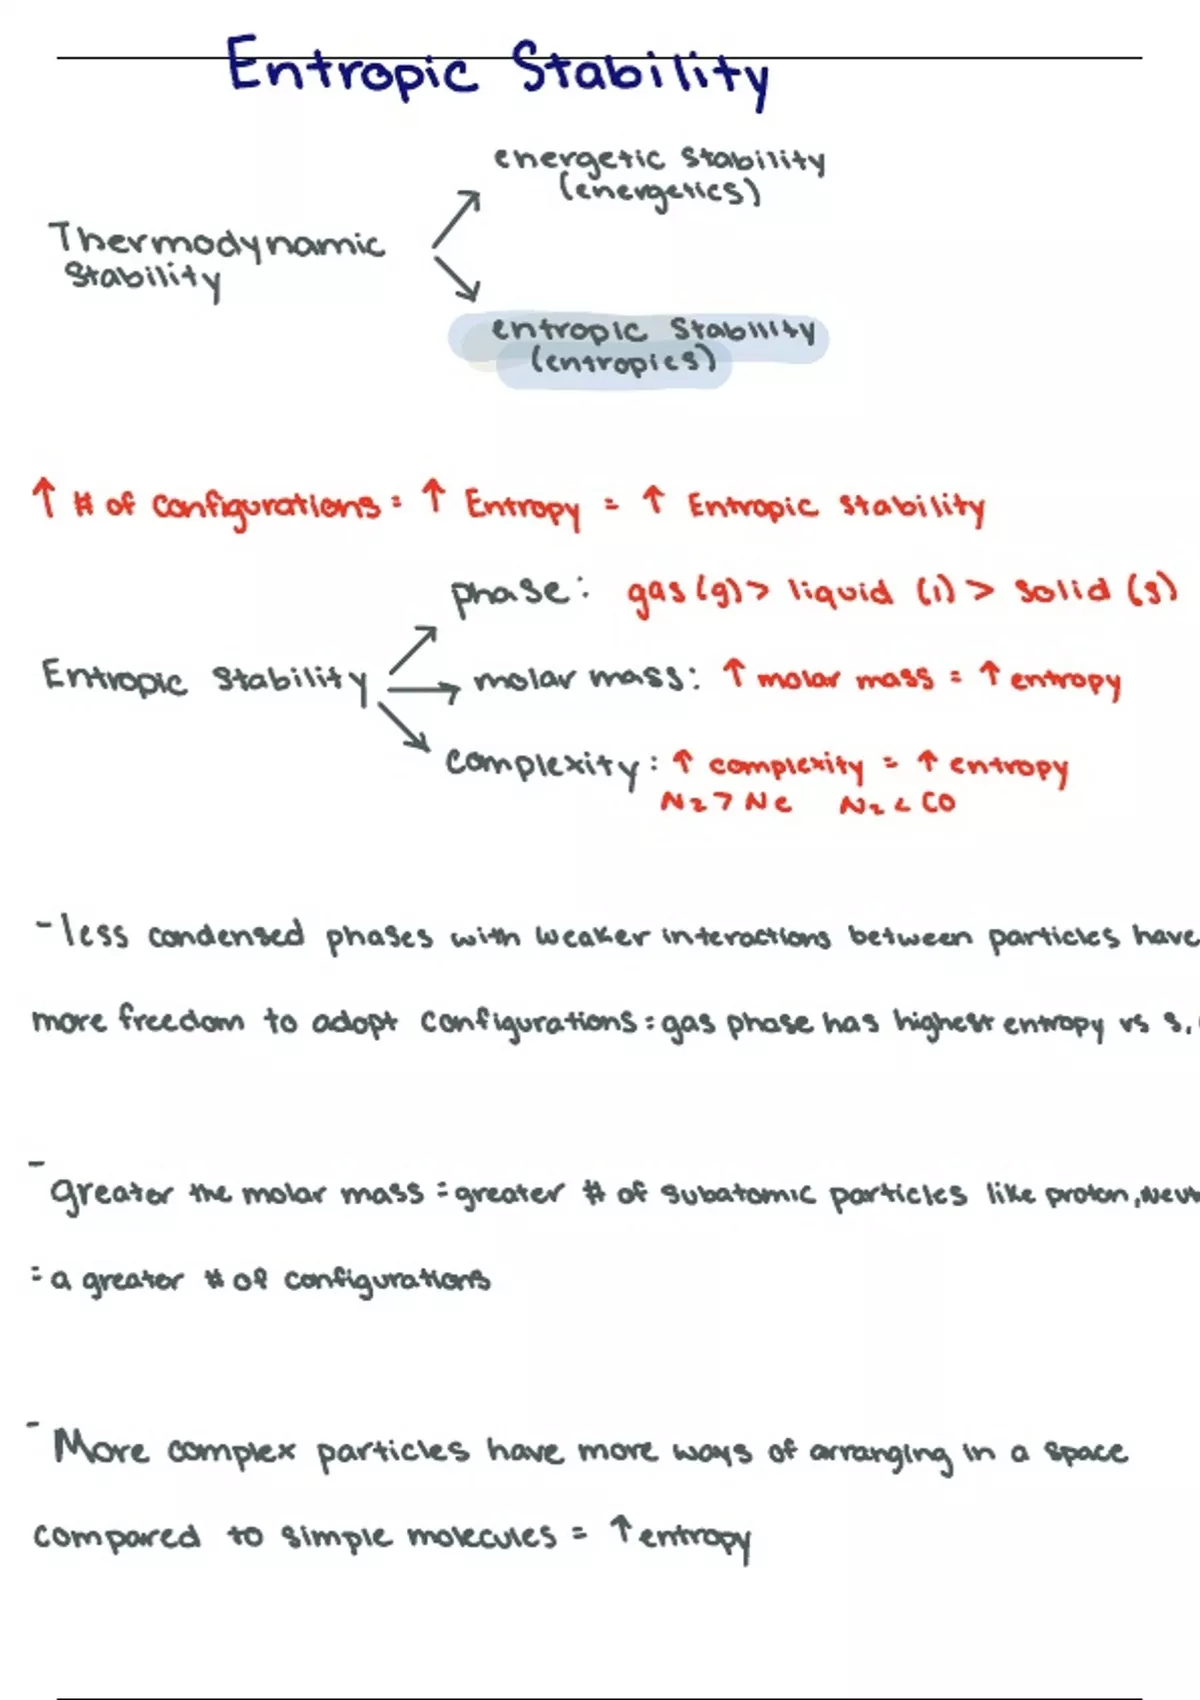 Entropic Stability
energetic stability
(energetics)
Thermodynamic
stability
entropic stability
(entropies)
↑ # of configurations = ↑ Entropy = ↑ Entropic stability
phase: gas (g) > liquid (l) > solid (s)
Entropic stability
molar mass: ↑ molar mass = ↑ entropy
complexity: ↑ complexity = ↑ entropy
N2 > Ne N2 < CO
- less condensed phases with weaker interactions between particles have
more freedom to adopt configurations = gas phase has highest entropy vs s,
- greater the molar mass = greater # of subatomic particles like proton,
= a greater # of configurations
- More complex particles have more ways of arranging in a space
compared to simple molecules = ↑ entropy